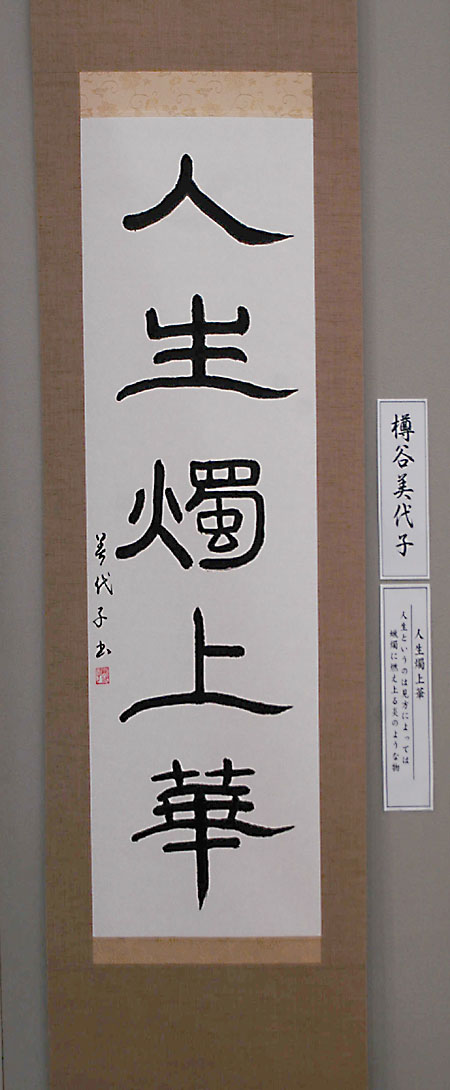 人生燭上華
美代子書
樽谷美代子
人生燭上華
人生というのは見方によっては
蝋燭に燃え上る炎のような物